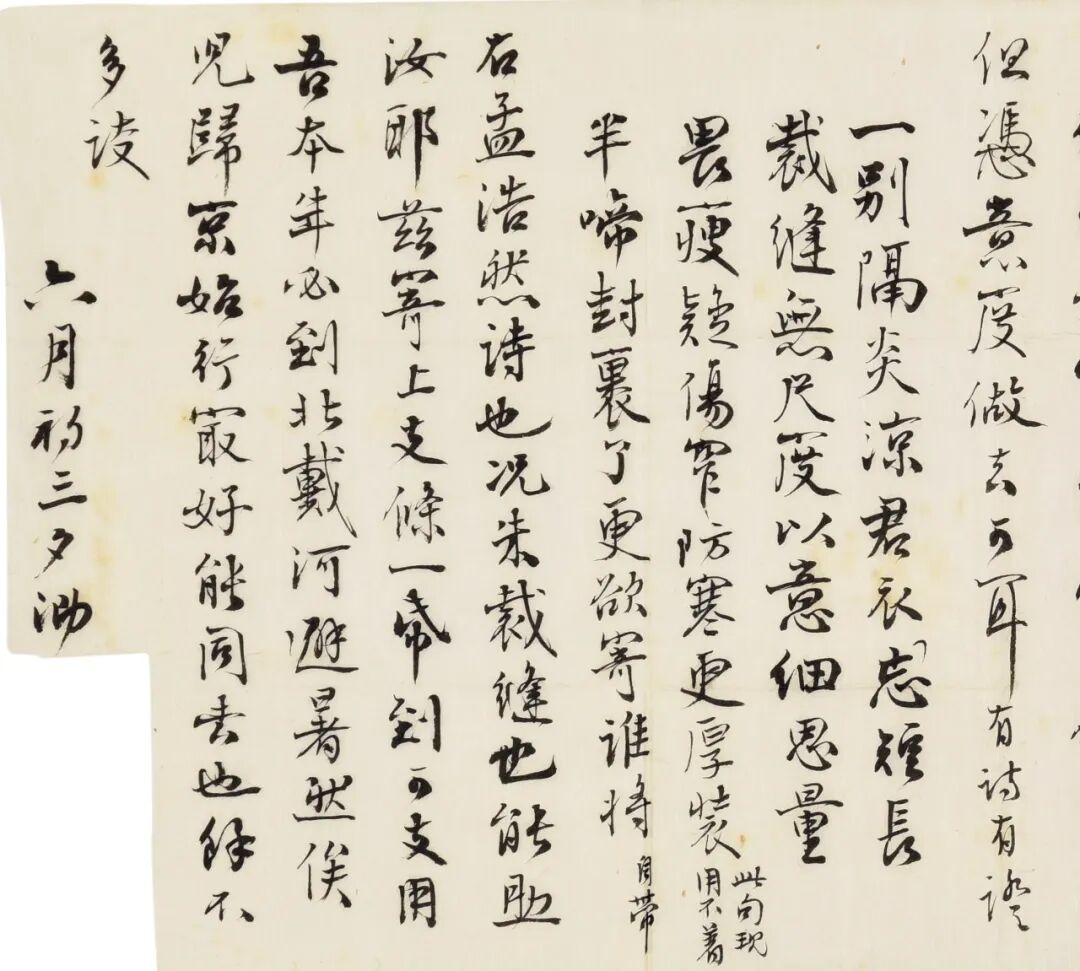 但憑意度做去可耳有詩有證
一別隔炎涼君衣忘短長
裁縫無尺度以意細思量
畏瘦疑傷窄防寒更厚裝
此句現
用不着
半啼封裹了更欲寄誰將
自帶
右孟浩然詩也况朱裁縫也能助
汝耶茲寄上支條一帋到可支用
吾本年必到北戴河避暑然俟
兒歸京始行最好能同去也餘不
多諉
六月初三夕泐